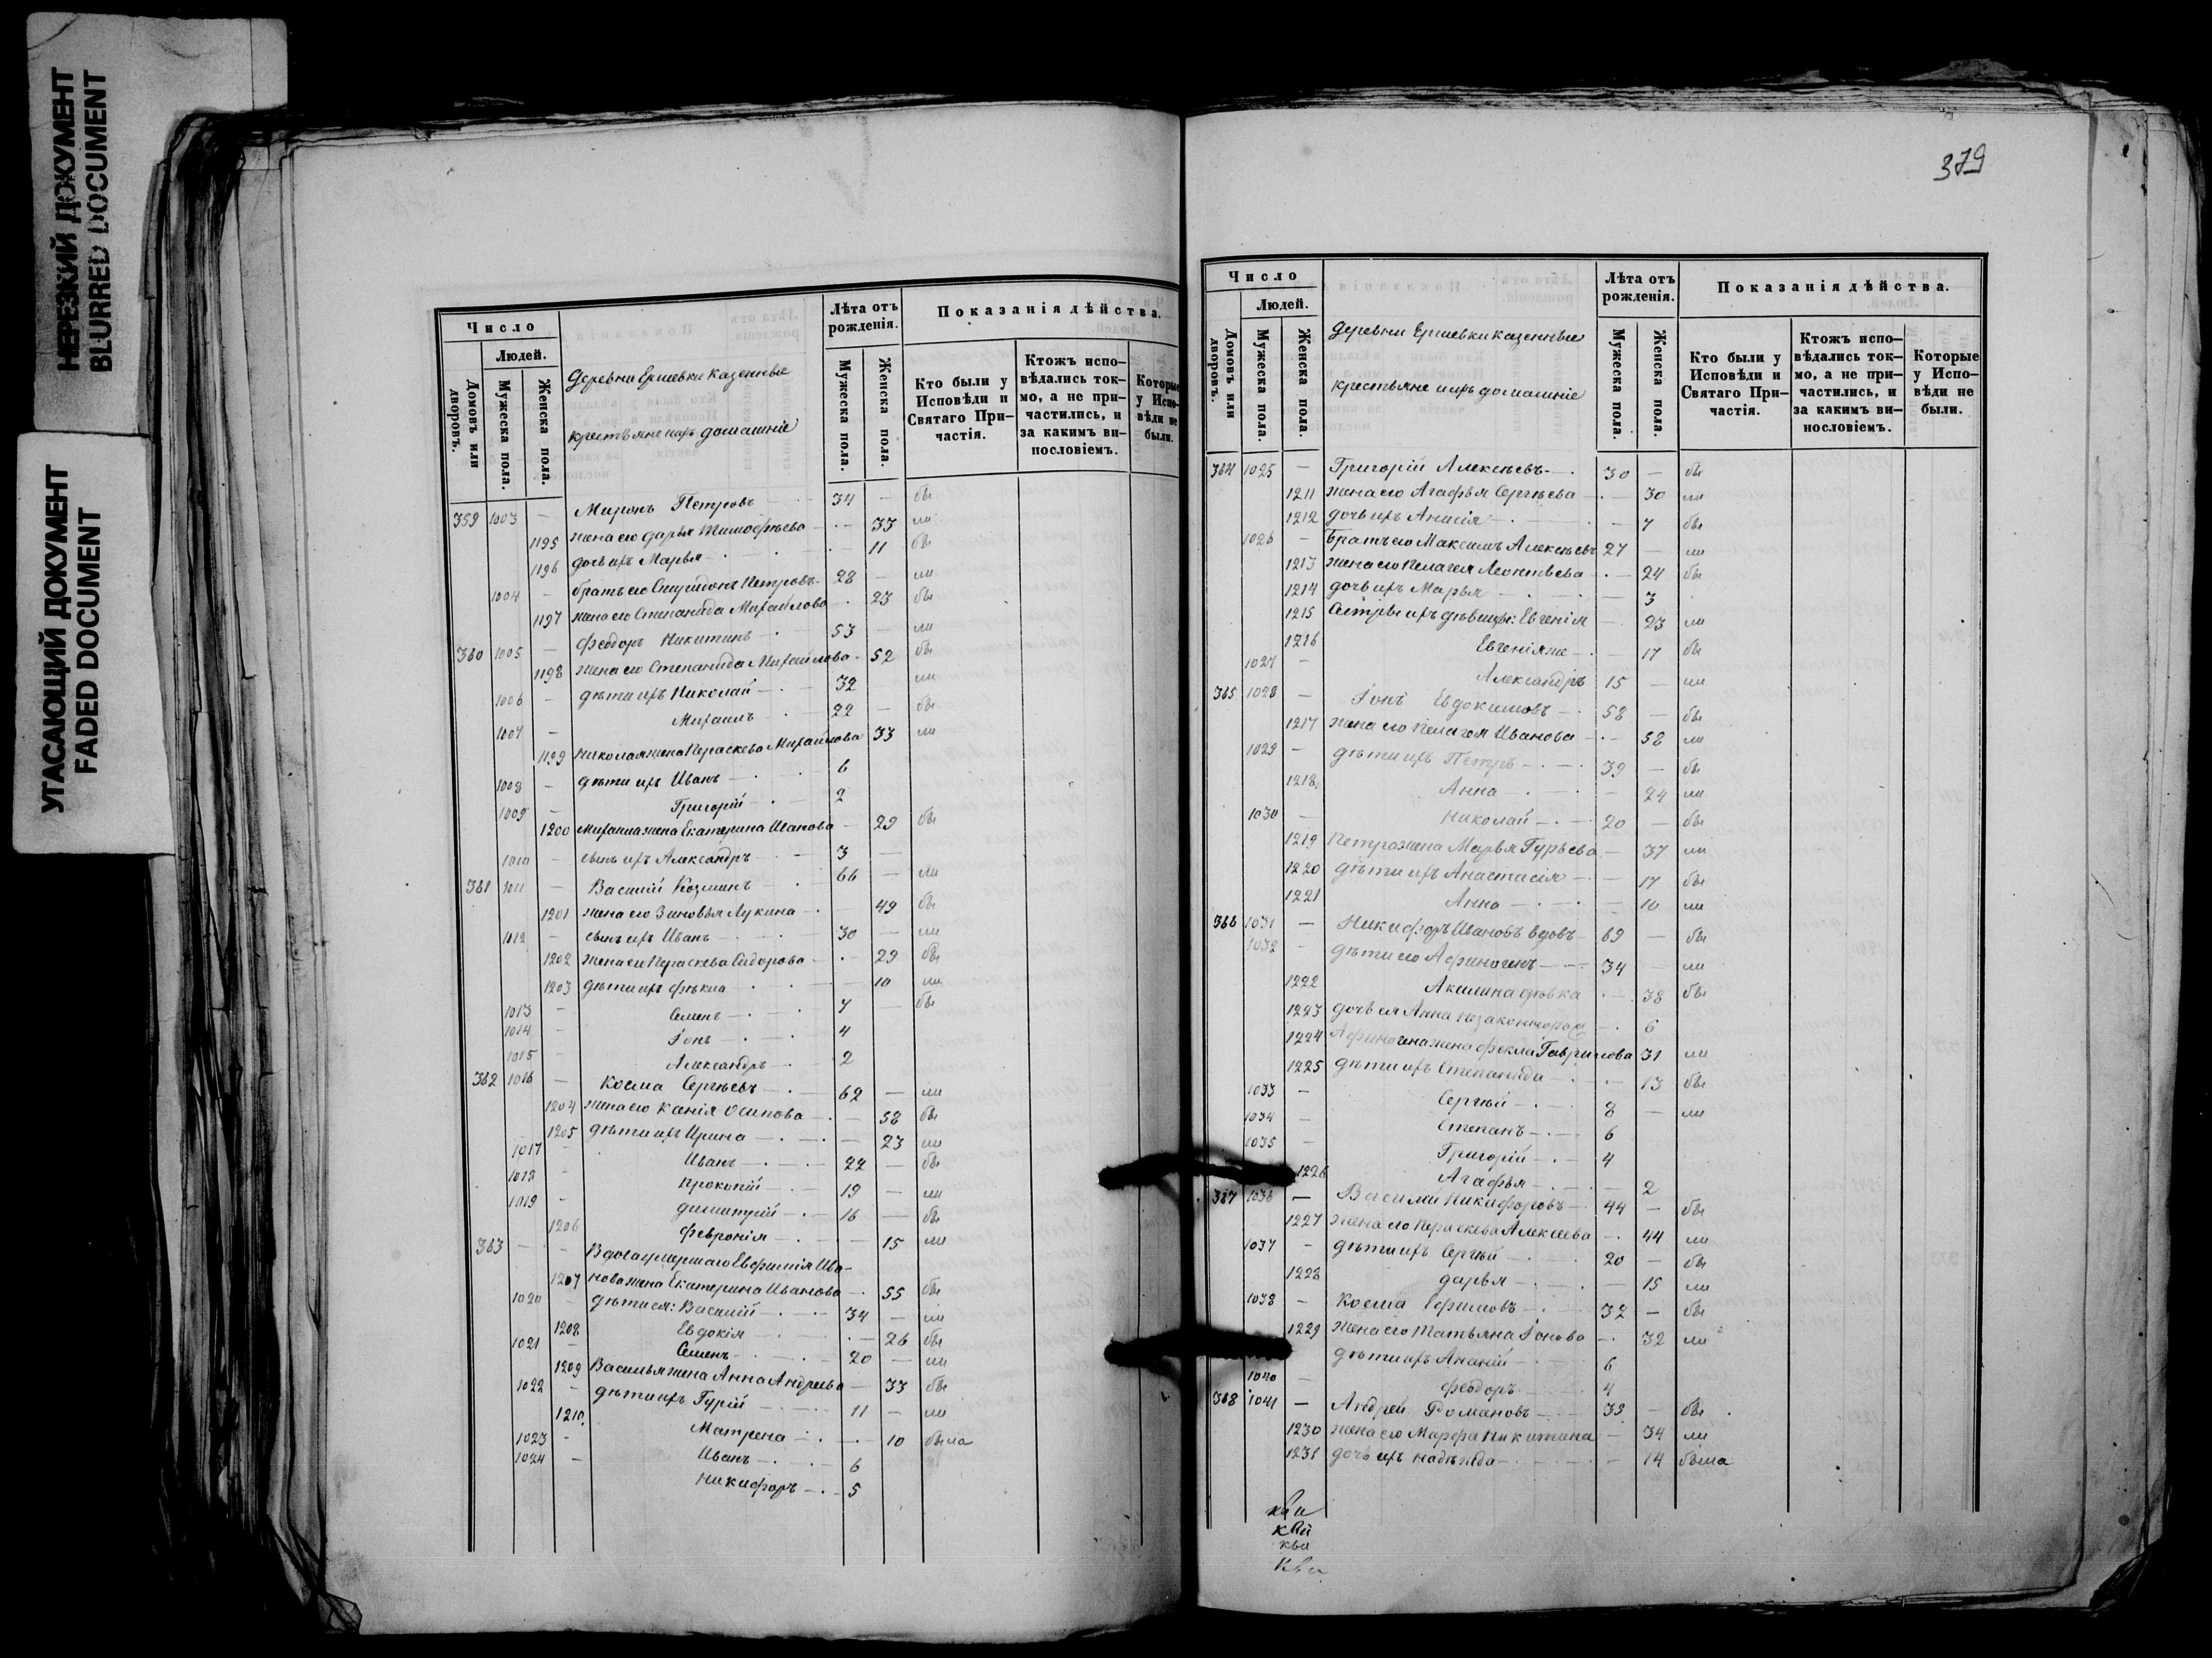 НЕРЕЗКИЙ ДОКУМЕНТ
BLURRED DOCUMENT
УГАСАЮЩИЙ ДОКУМЕНТ
FADED DOCUMENT
Число
Людей.
Домовъ или дворовъ.
Мужеска пола.
Женска пола.
Деревни Ершевки казенные
крестьяне ихъ домашніе
Лѣта отъ рожденія.
Мужеска пола.
Женска пола.
Показанія дѣйства.
Кто были у Исповѣди и Святаго Причастія.
Ктожъ исповѣдались токмо, а не причастились, и за какимъ випословіемъ.
Которые у Исповѣди не были.
359 1003 — Миронъ Петровъ 34 — бы
1195 жена его Дарья Тимофѣева — 33 ли
1196 дочь ихъ Марья — 11 бы
1004 — братъ его Спиридонъ Петровъ 28 — ли
1197 жена его Степанида Михайлова — 23 бы
360 1005 — Феодоръ Никитинъ 53 — ли
1198 жена его Степанида Михайлова — 52 бы
1006 — дѣти ихъ Николай 32 ли
1007 — Михаилъ 22 — бы
1199 Николая жена Параскева Михайлова 33 ли
1008 — дѣти ихъ Иванъ 6
1009 — Григорій 2
1200 Михаила жена Екатерина Иванова — 29 бы
1010 — сынъ ихъ Александръ 3 —
361 1011 — Василій Козминъ 66 — ли
1201 жена его Зиновья Лукина — 49 бы
1012 — сынъ ихъ Иванъ 30 — ли
1202 жена его Параскева Сидорова — 29 бы
1203 дѣти ихъ Фекла — 10 ли
1013 — Семенъ 7 — бы
1014 — Іонъ 4
1015 — Александръ 2
362 1016 — Косма Сергѣевъ 62 — ли
1204 жена его Ксенія Осипова — 58 бы
1205 дѣти ихъ Ирина — 23 ли
1017 — Иванъ 22 — бы
1018 Прокопій 19 — ли
1019 — Димитрій 16 — бы
1206 Февронія — 15 ли
363 — — Вдова умершаго Евфимія Ива-
1207 нова жена Екатерина Иванова — 55 бы
1020 — дѣти ея: Василій 34 — ли
1208 Евдокія — 26 бы
1021 — Семенъ 20 — ли
1209 Василья жена Анна Андреева — 33 бы
1022 — дѣти ихъ Гурій 11 — ли
1210 Матрена — 10 была
1023 — Иванъ 6
1024 — Никифоръ 5
379
Число
Людей.
Домовъ или дворовъ.
Мужеска пола.
Женска пола.
Деревни Ершевки казенные
крестьяне и ихъ домашніе
Лѣта отъ рожденія.
Мужеска пола.
Женска пола.
Показанія дѣйства.
Кто были у Исповѣди и Святаго Причастія.
Ктожъ исповѣдались токмо, а не причастились, и за какимъ винословіемъ.
Которые у Исповѣди не были.
364 1025 — Григорій Алексѣевъ 30 — бы
1211 жена его Агафья Сергѣева — 30 ли
1212 дочь ихъ Анисія — 7 бы
1026 — Братъ его Максимъ Алексѣевъ 27 — ли
1213 жена его Пелагея Леонтьева — 24 бы
1214 дочь ихъ Марья — 3
1215 Сестры ихъ дѣвицы: Евгенія — 23 ли
1216 Евгенія же — 17 бы
1027 — Александръ 15 — ли
365 1028 — Іонъ Евдокимовъ 58 — бы
1217 жена его Пелагея Иванова — 58 ли
1029 — дѣти ихъ Петръ 39 — бы
1218 Анна — 24 ли
1030 — Николай 20 — бы
1219 Петра жена Марья Гурьева — 37 ли
1220 дѣти ихъ Анастасія — 17 бы
1221 Анна — 10 ли
366 1031 — Никифоръ Ивановъ вдовъ 69 — бы
1032 — дѣти его Афиногенъ 34 — ли
1222 Акилина дѣвка — 38 бы
1223 дочь ея Анна незаконнорож — 6
1224 Афиногена жена Фекла Гаврилова 31 ли
1225 дѣти ихъ Степанида — 13 бы
1033 — Сергѣй 8 — ли
1034 — Степанъ 6
1035 — Григорій 4
1226 Агафья — 2
367 1036 — Василій Никифоровъ 44 — бы
1227 жена его Параскева Алексеева — 44 ли
1037 — дѣти ихъ Сергѣй 20 — бы
1228 Дарья — 15 ли
1038 — Косма Ефимовъ 32 — бы
1229 жена его Татьяна Іонова — 32 ли
дѣти ихъ Ананій 6
1040 — Феодоръ 4
368 1041 — Андрей Романовъ 33 — бы
1230 жена его Марфа Никитина — 34 ли
1231 дочь ихъ Надѣжда — 14 была